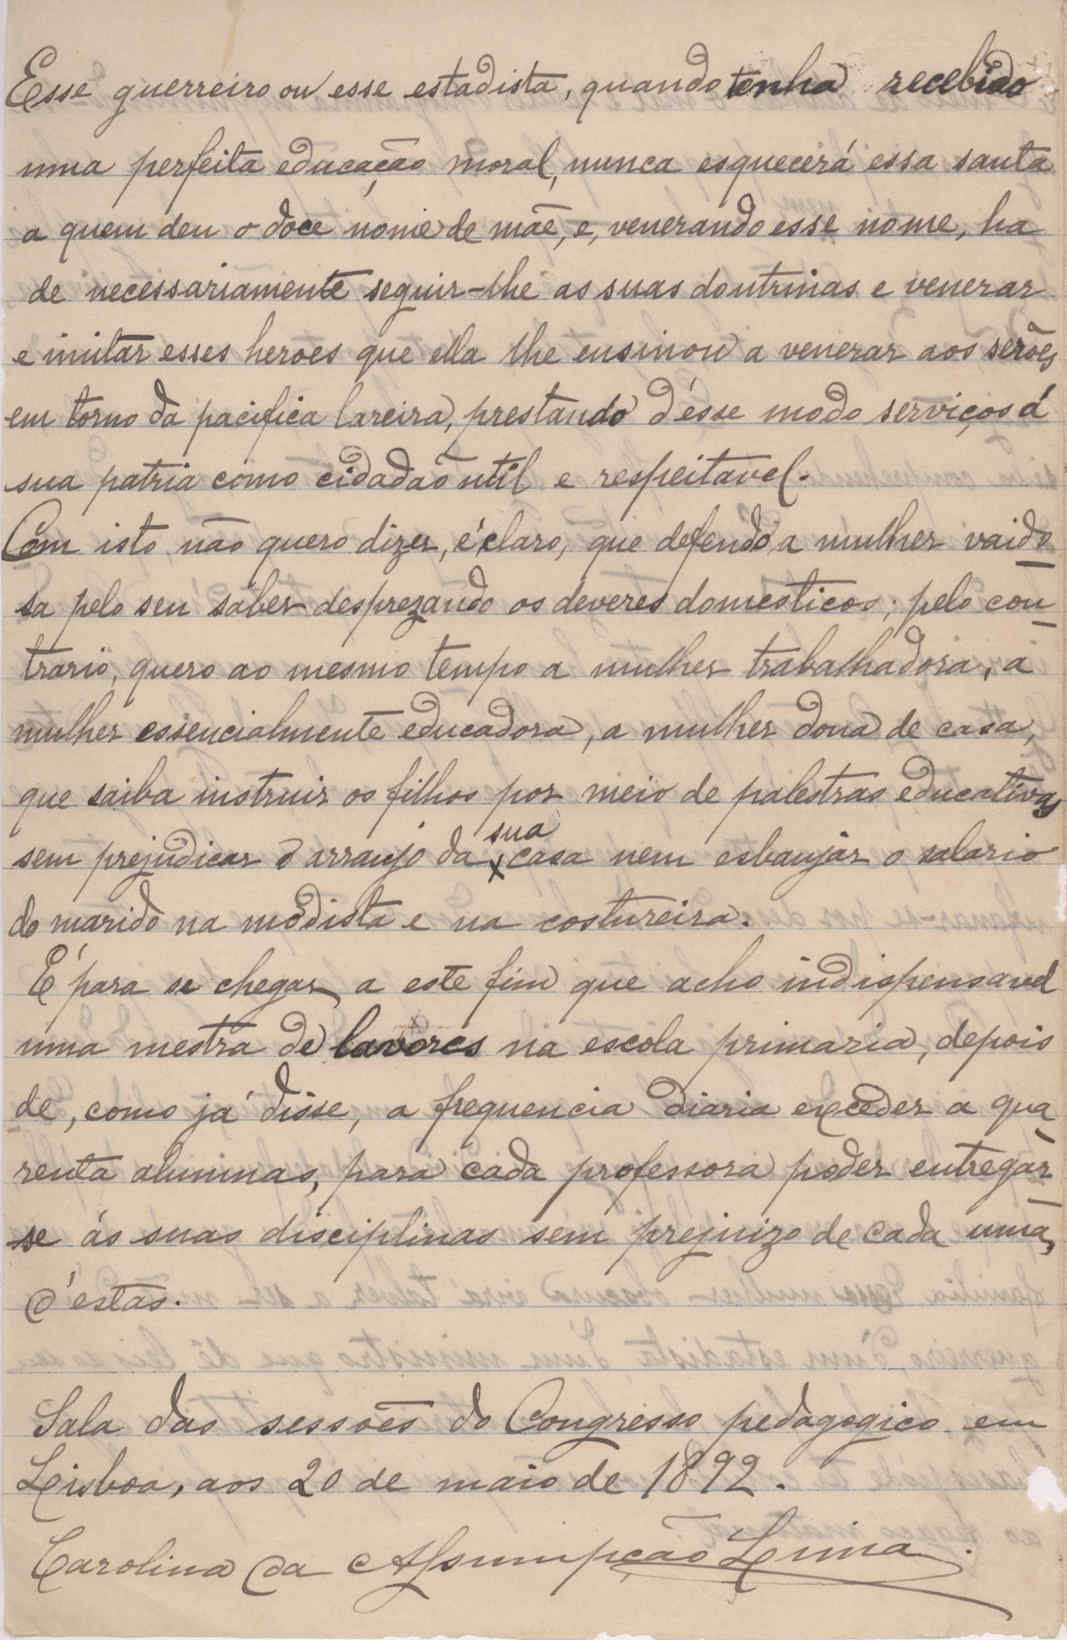 Esse guerreiro ou esse estadista, quando tenha recebido
uma perfeita educação moral, nunca esquecerá essa santa
a quem deu o doce nome de mãe, e, venerando esse nome, ha
de necessariamente seguir-lhe as suas doutrinas e venerar
e imitar esses heroes que ella lhe ensinou a venerar aos serões
em torno da pacifica lareira, prestando d'esse modo serviços á
sua patria como cidadão util e respeitavel.
Com isto não quero dizer, é claro, que defendo a mulher vaido
sa pelo seu saber desprezando os deveres domesticos; pelo con
trario, quero ao mesmo tempo a mulher trabalhadora, a
mulher essencialmente educadora, a mulher dona de casa,
que saiba instruir os filhos por meio de palestras educativas
sem prejudicar o arranjo da sua casa nem esbanjar o salario
do marido na modista e na costureira.
É para se chegar a este fim que acho indispensavel
uma mestra de lavores na escola primaria, depois
de, como já disse, a frequencia diaria exceder a qua
renta alumnas, para cada professora poder entregar
se ás suas disciplinas sem prejuizo de cada uma,
d'estas.
Sala das sessões do Congresso pedagogico em
Lisboa, aos 20 de maio de 1892.
Carolina da Assumpção Lima.